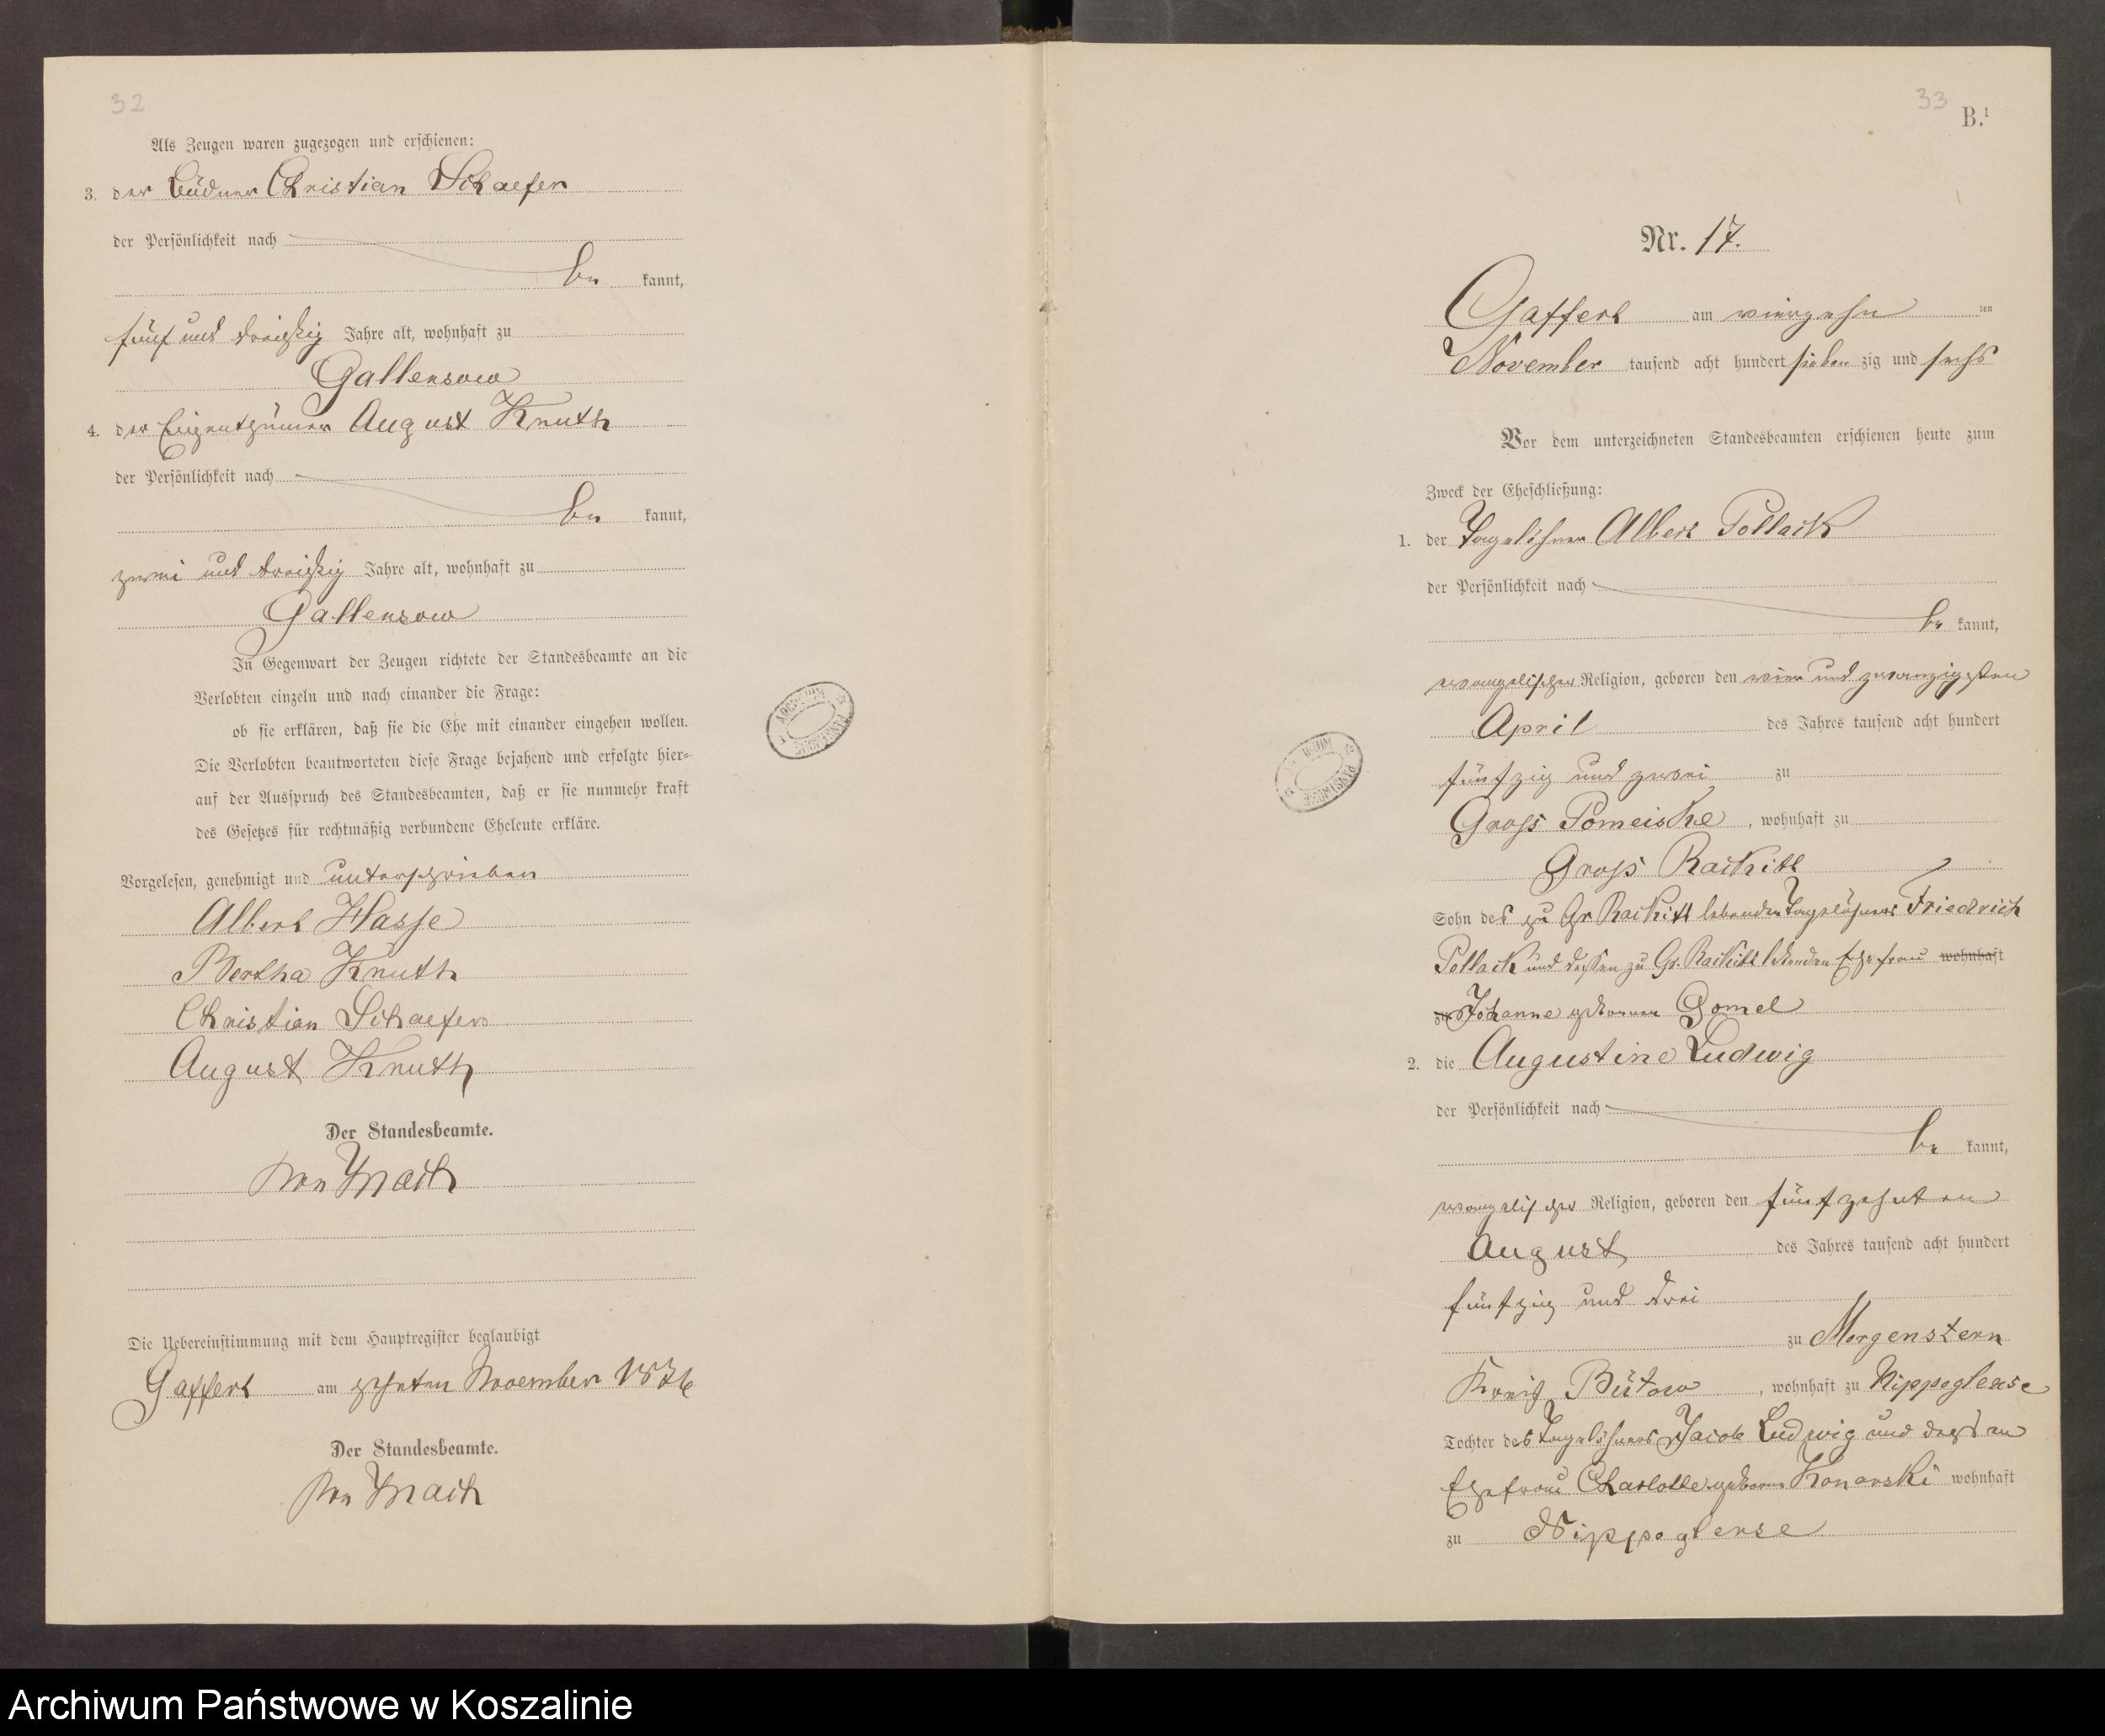 32
Als Zeugen waren zugezogen und erschienen:
3. der Büdner Christian Schaefer
der Persönlichkeit nach
be kannt,
fünf und dreißig Jahre alt, wohnhaft zu
Gallensow
4. der Eigenthümer August Knuth
der Persönlichkeit nach
be kannt,
zwei und dreißig Jahre alt, wohnhaft zu
Gallensow
In Gegenwart der Zeugen richtete der Standesbeamte an die
Verlobten einzeln und nach einander die Frage:
ob sie erklären, daß sie die Ehe mit einander eingehen wollen.
Die Verlobten beantworteten diese Frage bejahend und erfolgte hier=
auf der Ausspruch des Standesbeamten, daß er sie nunmehr kraft
des Gesetzes für rechtmäßig verbundene Eheleute erkläre.
Vorgelesen, genehmigt und unterschrieben
Albert Hasse
Bertha Knuth
Christian Schaefer
August Knuth
Der Standesbeamte.
von Mach
Die Uebereinstimmung mit dem Hauptregister beglaubigt
Gaffert am zehnten November 1876
Der Standesbeamte.
von Mach
33
B.¹
Nr. 17.
Gaffert am vierzehn ten
November tausend acht hundert sieben zig und sechs
Vor dem unterzeichneten Standesbeamten erschienen heute zum
Zweck der Eheschließung:
1. der Tagelöhner Albert Pollack
der Persönlichkeit nach
be kannt,
evangelischer Religion, geboren den vier und zwanzigsten
April des Jahres tausend acht hundert
fünfzig und zwei zu
Gross Pomeiske, wohnhaft zu
Gross Rackitt
Sohn des zu Gr Rackitt lebenden Tagelöhners Friedrich
Pollack und dessen zu Gr. Rackitt lebenden Ehefrau wohnhaft
zu Johanne geborenen Gomel
2. die Augustine Ludwig
der Persönlichkeit nach
be kannt,
evangelischer Religion, geboren den fünfzehnten
August des Jahres tausend acht hundert
fünfzig und drei
zu Morgenstern
Kreis Bütow, wohnhaft zu Nippoglense
Tochter des Tagelöhners Jacob Ludwig und dessen
Ehefrau Charlotte geborne Konorski wohnhaft
zu Nippoglense
Archiwum Państwowe w Koszalinie